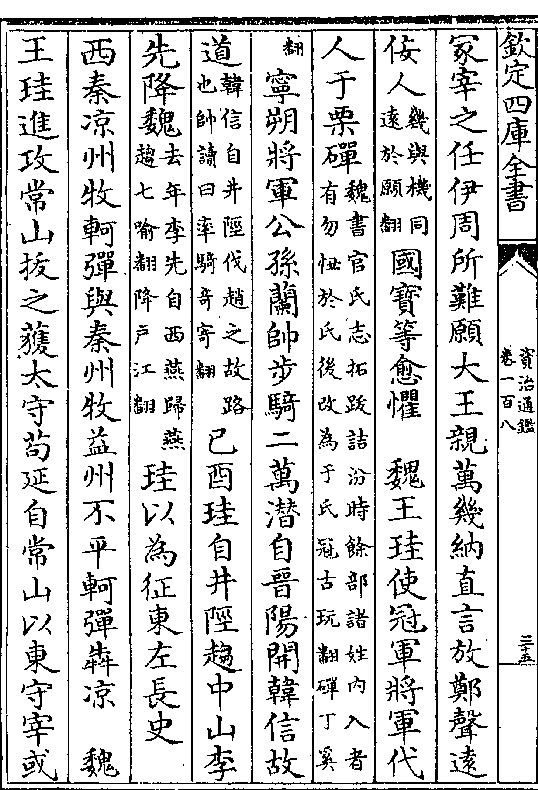 欽定四庫全書
資治通鑑
卷一百八
三十五
冢宰之任伊周所難願大王親萬幾納直言放鄭聲遠
佞人幾與機同遠於願翻國寶等愈懼　魏王珪使冠軍將軍代
人于栗磾魏書官氏志拓跋詰汾時餘部諸姓内入者有勿忸於氏後改為于氏冠古玩翻磾丁奚
翻寧朔將軍公孫蘭帥步騎二萬潛自晉陽開韓信故
道韓信自井陘伐趙之故路也帥讀曰率騎奇寄翻己酉珪自井陘趨中山李
先降魏去年李先自西燕歸燕趨七喻翻降戶江翻珪以為征東左長史
西秦凉州牧軻彈與秦州牧益州不平軻彈犇凉　魏
王珪進攻常山拔之獲太守苟延自常山以東守宰或